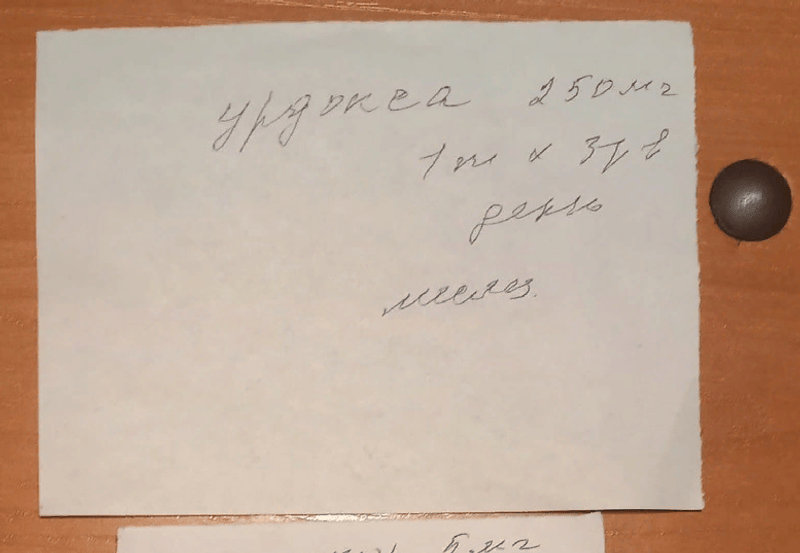 урдокса 250 мг
1 т х 3 р в
день
месяц.
5 мг